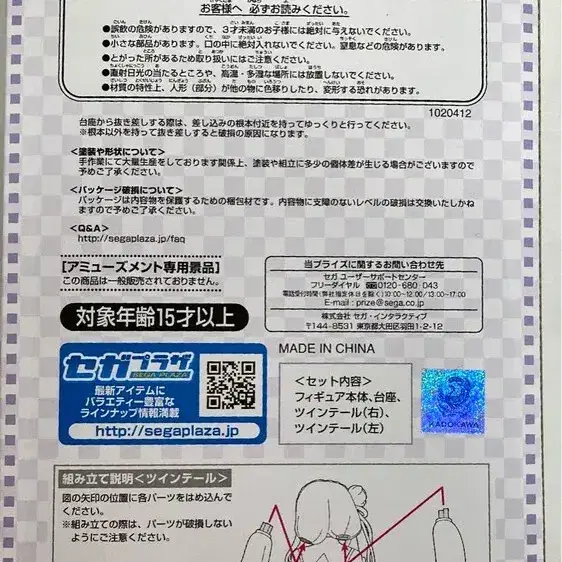 お客様へ 必ずお読みください。
●誤飲の危険がありますので、3才未満のお子様には絶対に与えないでください。
●小さな部品があります。口の中に絶対入れないでください。窒息などの危険があります。
●とがった所があるため取り扱いにはご注意ください。
●直射日光の当たるところや、高温・多湿な場所には放置しないでください。
●材質の特性上、人形(部分)が他の物に色移りしたり、変形する恐れがあります。
1020412
台座から抜き差しする際は、差し込みの根本付近を持ってゆっくりと行ってください。
※根本以外を持って抜き差しすると破損の原因になります。
<塗装や形状について>
手作業にて大量生産をしております関係上、塗装や組立に多少の個体差が生じる場合がございますので
予めご了承ください。
<パッケージ破損について>
パッケージは内容物を保護するための梱包材です。内容物に支障のないレベルの破損は交換いたしかね
ますので予めご了承ください。
<Q&A>
http://segaplaza.jp/faq
【アミューズメント専用景品】
この商品は一般販売されておりません。
対象年齢15才以上
当プライズに関するお問い合わせ先
セガ ユーザーサポートセンター
フリーダイヤル 0120-680-043
電話受付時間(弊社指定休日を除く)10:00~12:00/13:00~17:00
E-mail : prize@sega.co.jp
株式会社 セガ・インタラクティブ
〒144-8531 東京都大田区羽田1-2-12
セガプラザ
SEGA PLAZA
最新アイテムに
バラエティー豊富な
ラインナップ情報満載
http://segaplaza.jp
MADE IN CHINA
<セット内容>
フィギュア本体、台座、
ツインテール(右)、
ツインテール(左)
KADOKAWA
組み立て説明<ツインテール>
図の矢印の位置に各パーツをはめ込んで
ください。
※組み立ての際は、パーツが破損しない
ようにご注意ください。